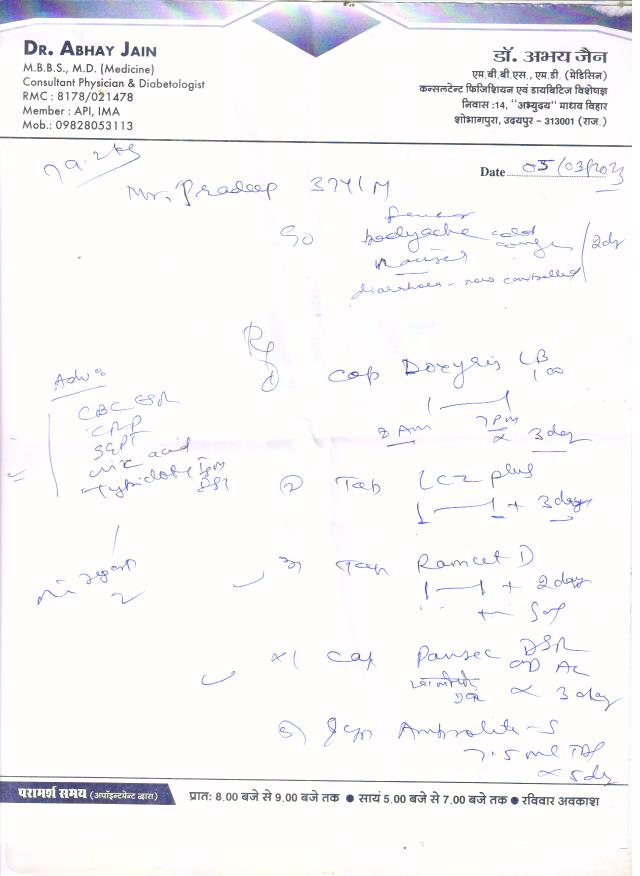 DR. ABHAY JAIN
M.B.B.S., M.D. (Medicine)
Consultant Physician & Diabetologist
RMC : 8178/021478
Member : API, IMA
Mob.: 09828053113
डॉ. अभय जैन
एम.बी.बी.एस., एम.डी. (मेडिसिन)
कन्सलटेन्ट फिजिशियन एवं डायबिटिज विशेषज्ञ
निवास :14, "अभ्युदय" माधव विहार
शोभागपुरा, उदयपुर - 313001 (राज.)
Date 05/03/2023
79.2 kg
Mr. Pradeep 37Y/M
bodyache cold
diarrhoea - now controlled
Rx
Cap Doxyris LB
100
8 AM 7 PM
x 3 day
Adv:
CBC ESR
CRP
SGPT
uric acid
Typhidot IgM
② Tab LCZ plus
1 1 + 3 days
Tab Ramcet D
1 1 + 2 days
Cap Pansec DSR
OD AC
x 3 day
Ambrolite-S
7.5 ml TDS
x 5 day
परामर्श समय (अपॉइन्टमेन्ट द्वारा)
प्रात: 8.00 बजे से 9.00 बजे तक ● सायं 5.00 बजे से 7.00 बजे तक ● रविवार अवकाश